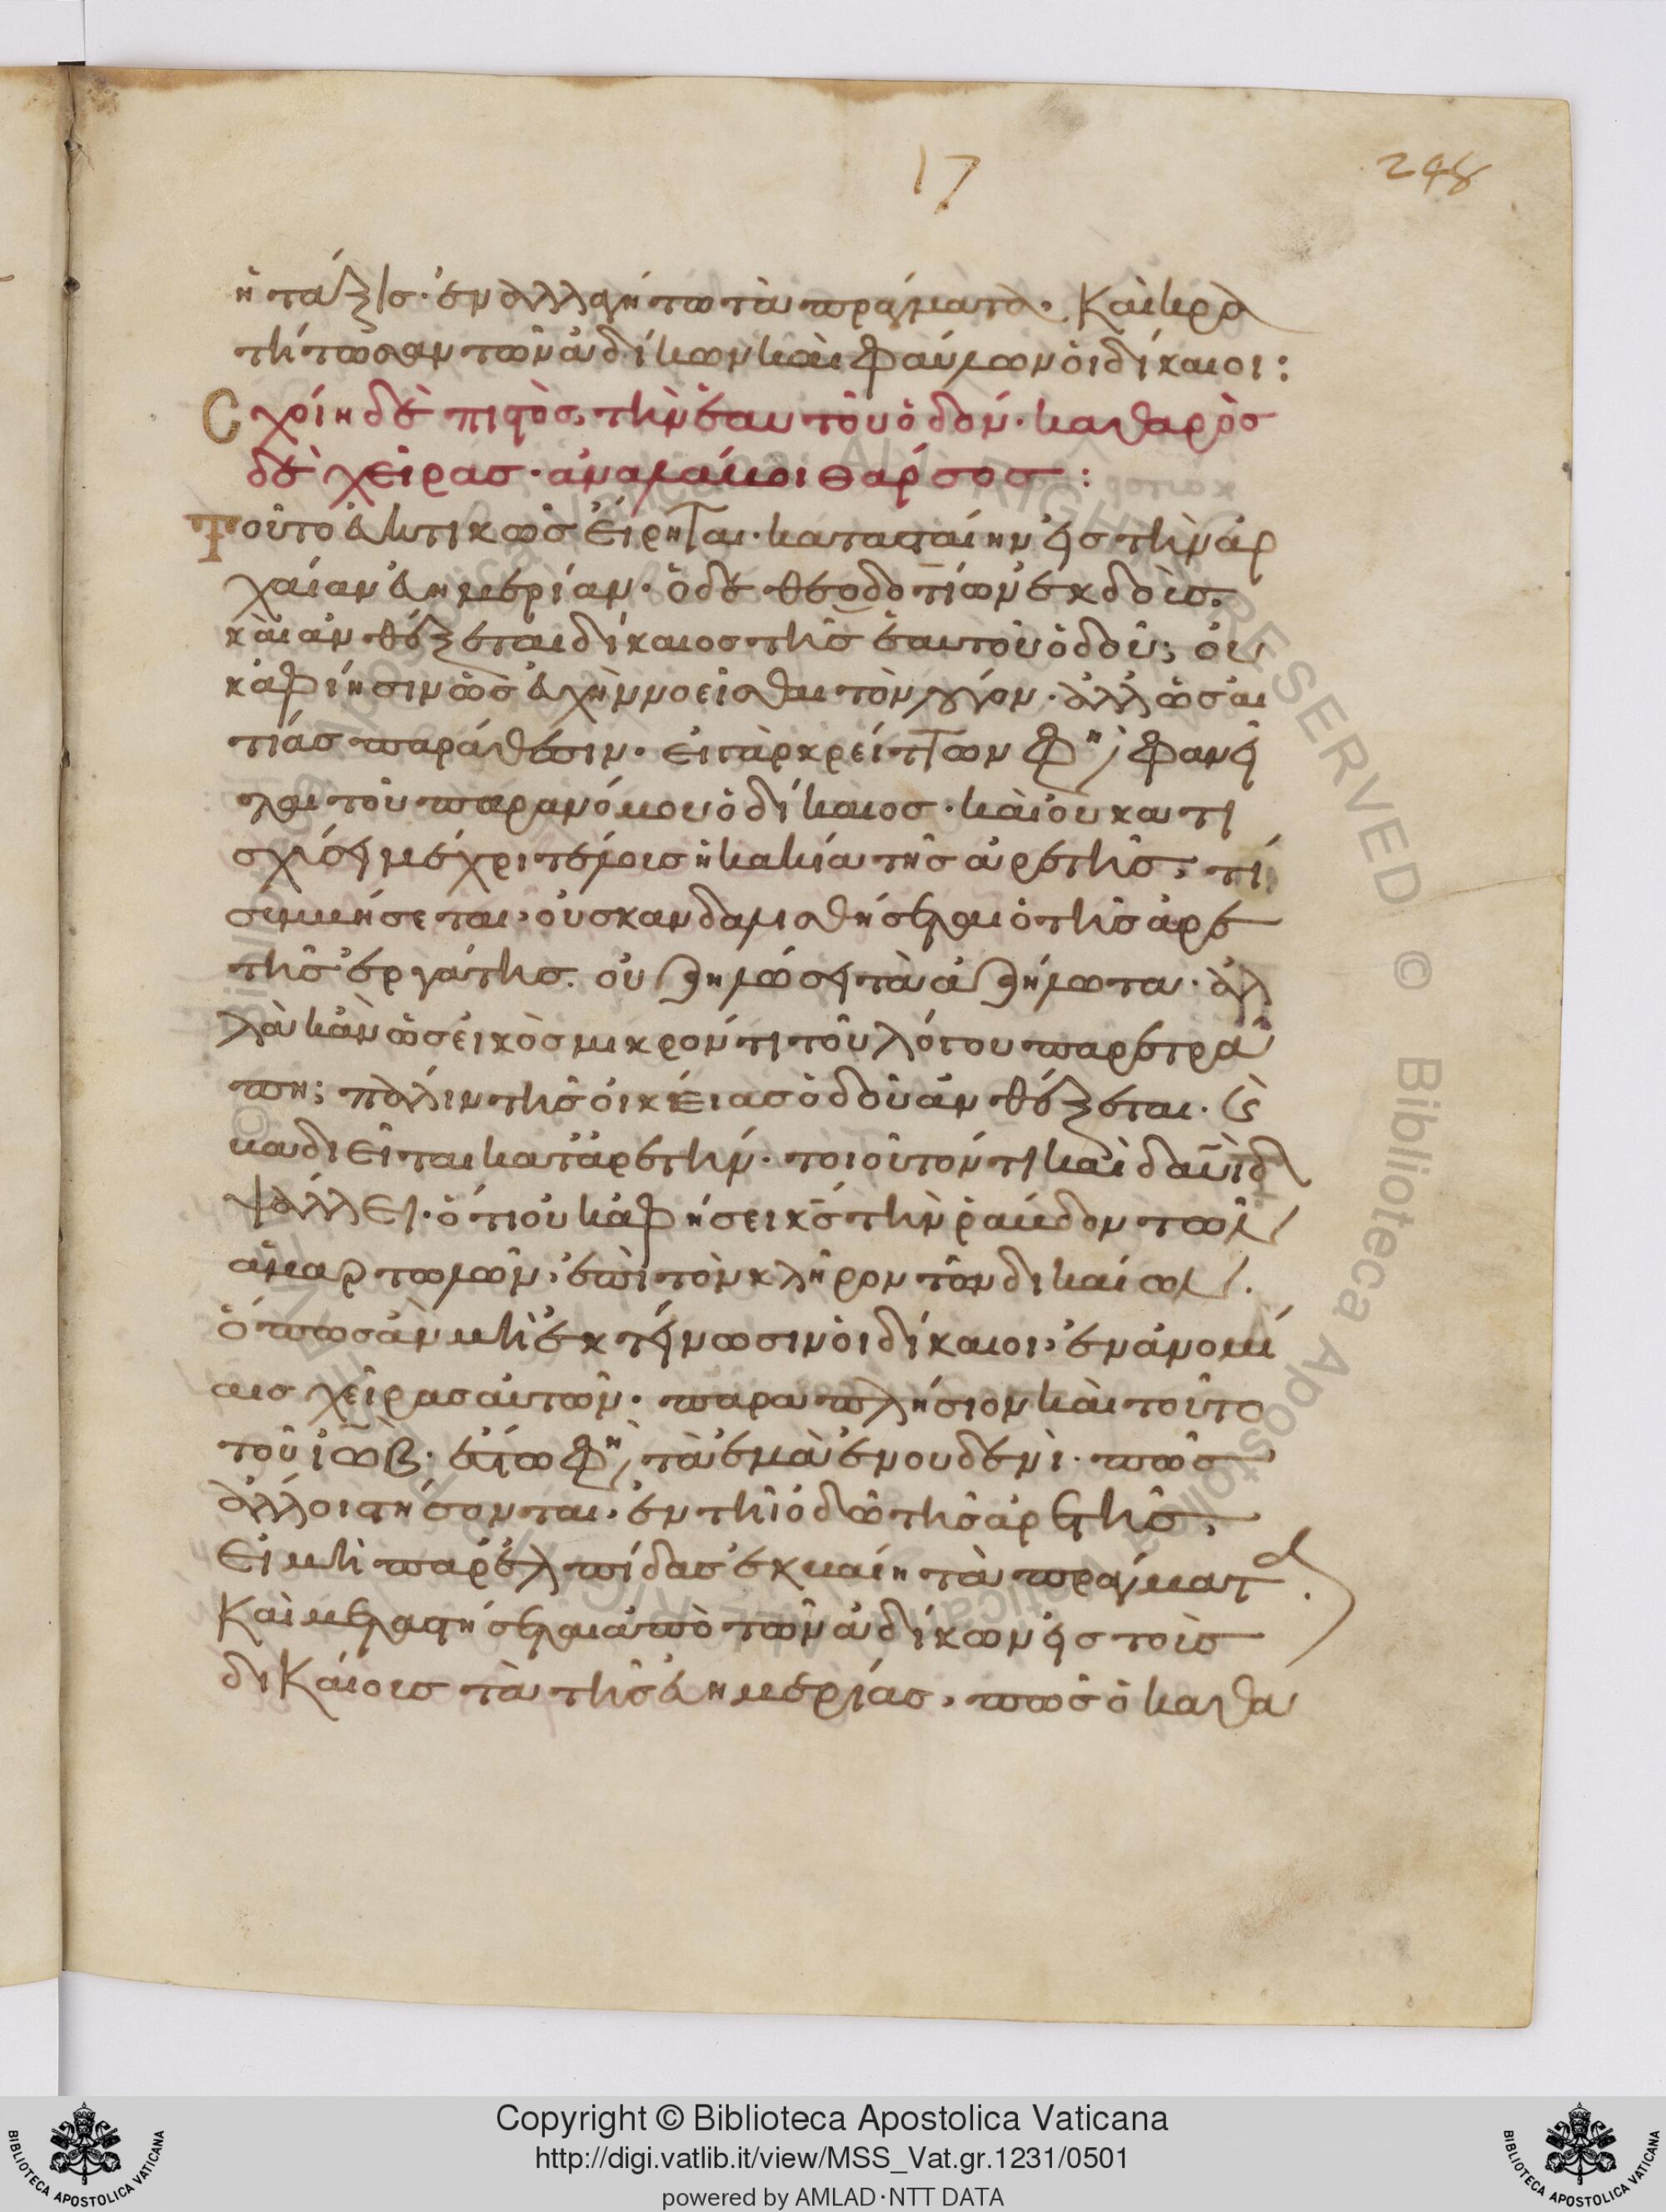 17
248
ἡ τάξις· ἐναλλαγήτω τὰ πράγματα· Καὶ κρα
τήτωσαν τῶν ἀδίκων καὶ φαύλων οἱ δίκαιοι:
Σχοίη δὲ πιστὸς τὴν ἑαυτοῦ ὁδόν· καθαρὸς
δὲ χεῖρας· ἀναλάβοι θάρσος:
Τοῦτο εὐκτικῶς εἴρηται· κατασταίην εἰς τὴν ἀρ
χαίαν εὐημερίαν· ὁ δὲ θεοδοτίων ἐκδοὺς
καὶ ἀνθέξεται δίκαιος τῆς ἑαυτοῦ ὁδοῦ; οὐ
κ ἀφίησιν ὡς εὐχὴν νοεῖσθαι τὸν λόγον· ἀλλ ὡς αἰ
τίας παράθεσιν· εἰ γὰρ κρείττων φη φανεῖ
ται τοῦ παρανόμου ὁ δίκαιος· καὶ οὐ κατι
σχύσει μέχρι τέλους ἡ κακία τῆς ἀρετῆς, τί
συμβήσεται, οὐ σκανδαλισθήσεται ὁ τῆς ἀρε
τῆς ἐργάτης. οὐ ζηλώσει τὰ ἀζήλωτα· ἀλ
λὰ κἂν ὡς εἰκὸς μικρόν τι τοῦ λόγου παρετρά
πη; πάλιν τῆς οἰκείας ὁδοῦ ἀνθέξεται· ἵ
να διεῖται κατ ἀρετήν· τοιοῦτόν τι καὶ δαυὶδ
ψάλλει· ὅτι οὐκ ἀφήσει κς τὴν ῥάβδον τῶν
ἁμαρτωλῶν, ἐπὶ τὸν κλῆρον τῶν δικαίων.
ὅπως ἂν μὴ ἐκτείνωσιν οἱ δίκαιοι, ἐν ἀνομί
αις χεῖρας αὐτῶν· παραπλήσιον καὶ τοῦτο
τοῦ ἰώβ· ἐῶ φη τὰ ἐμὰ ἐν οὐδενὶ· πῶς
ἄλλοι στήσονται, ἐν τῆ ὁδῶ τῆς ἀρετῆς,
Εἰ μὴ παρ ἐλπίδας ἐκβαίη τὰ πράγματα.
Καὶ μεταστήσεται ἀπὸ τῶν ἀδίκων εἰς τοὺς
δικαίους τὰ τῆς εὐημερίας, πῶς ὁ καθα
Copyright © Biblioteca Apostolica Vaticana
http://digi.vatlib.it/view/MSS_Vat.gr.1231/0501
powered by AMLAD·NTT DATA
BIBLIOTECA APOSTOLICA VATICANA
BIBLIOTECA APOSTOLICA VATICANA